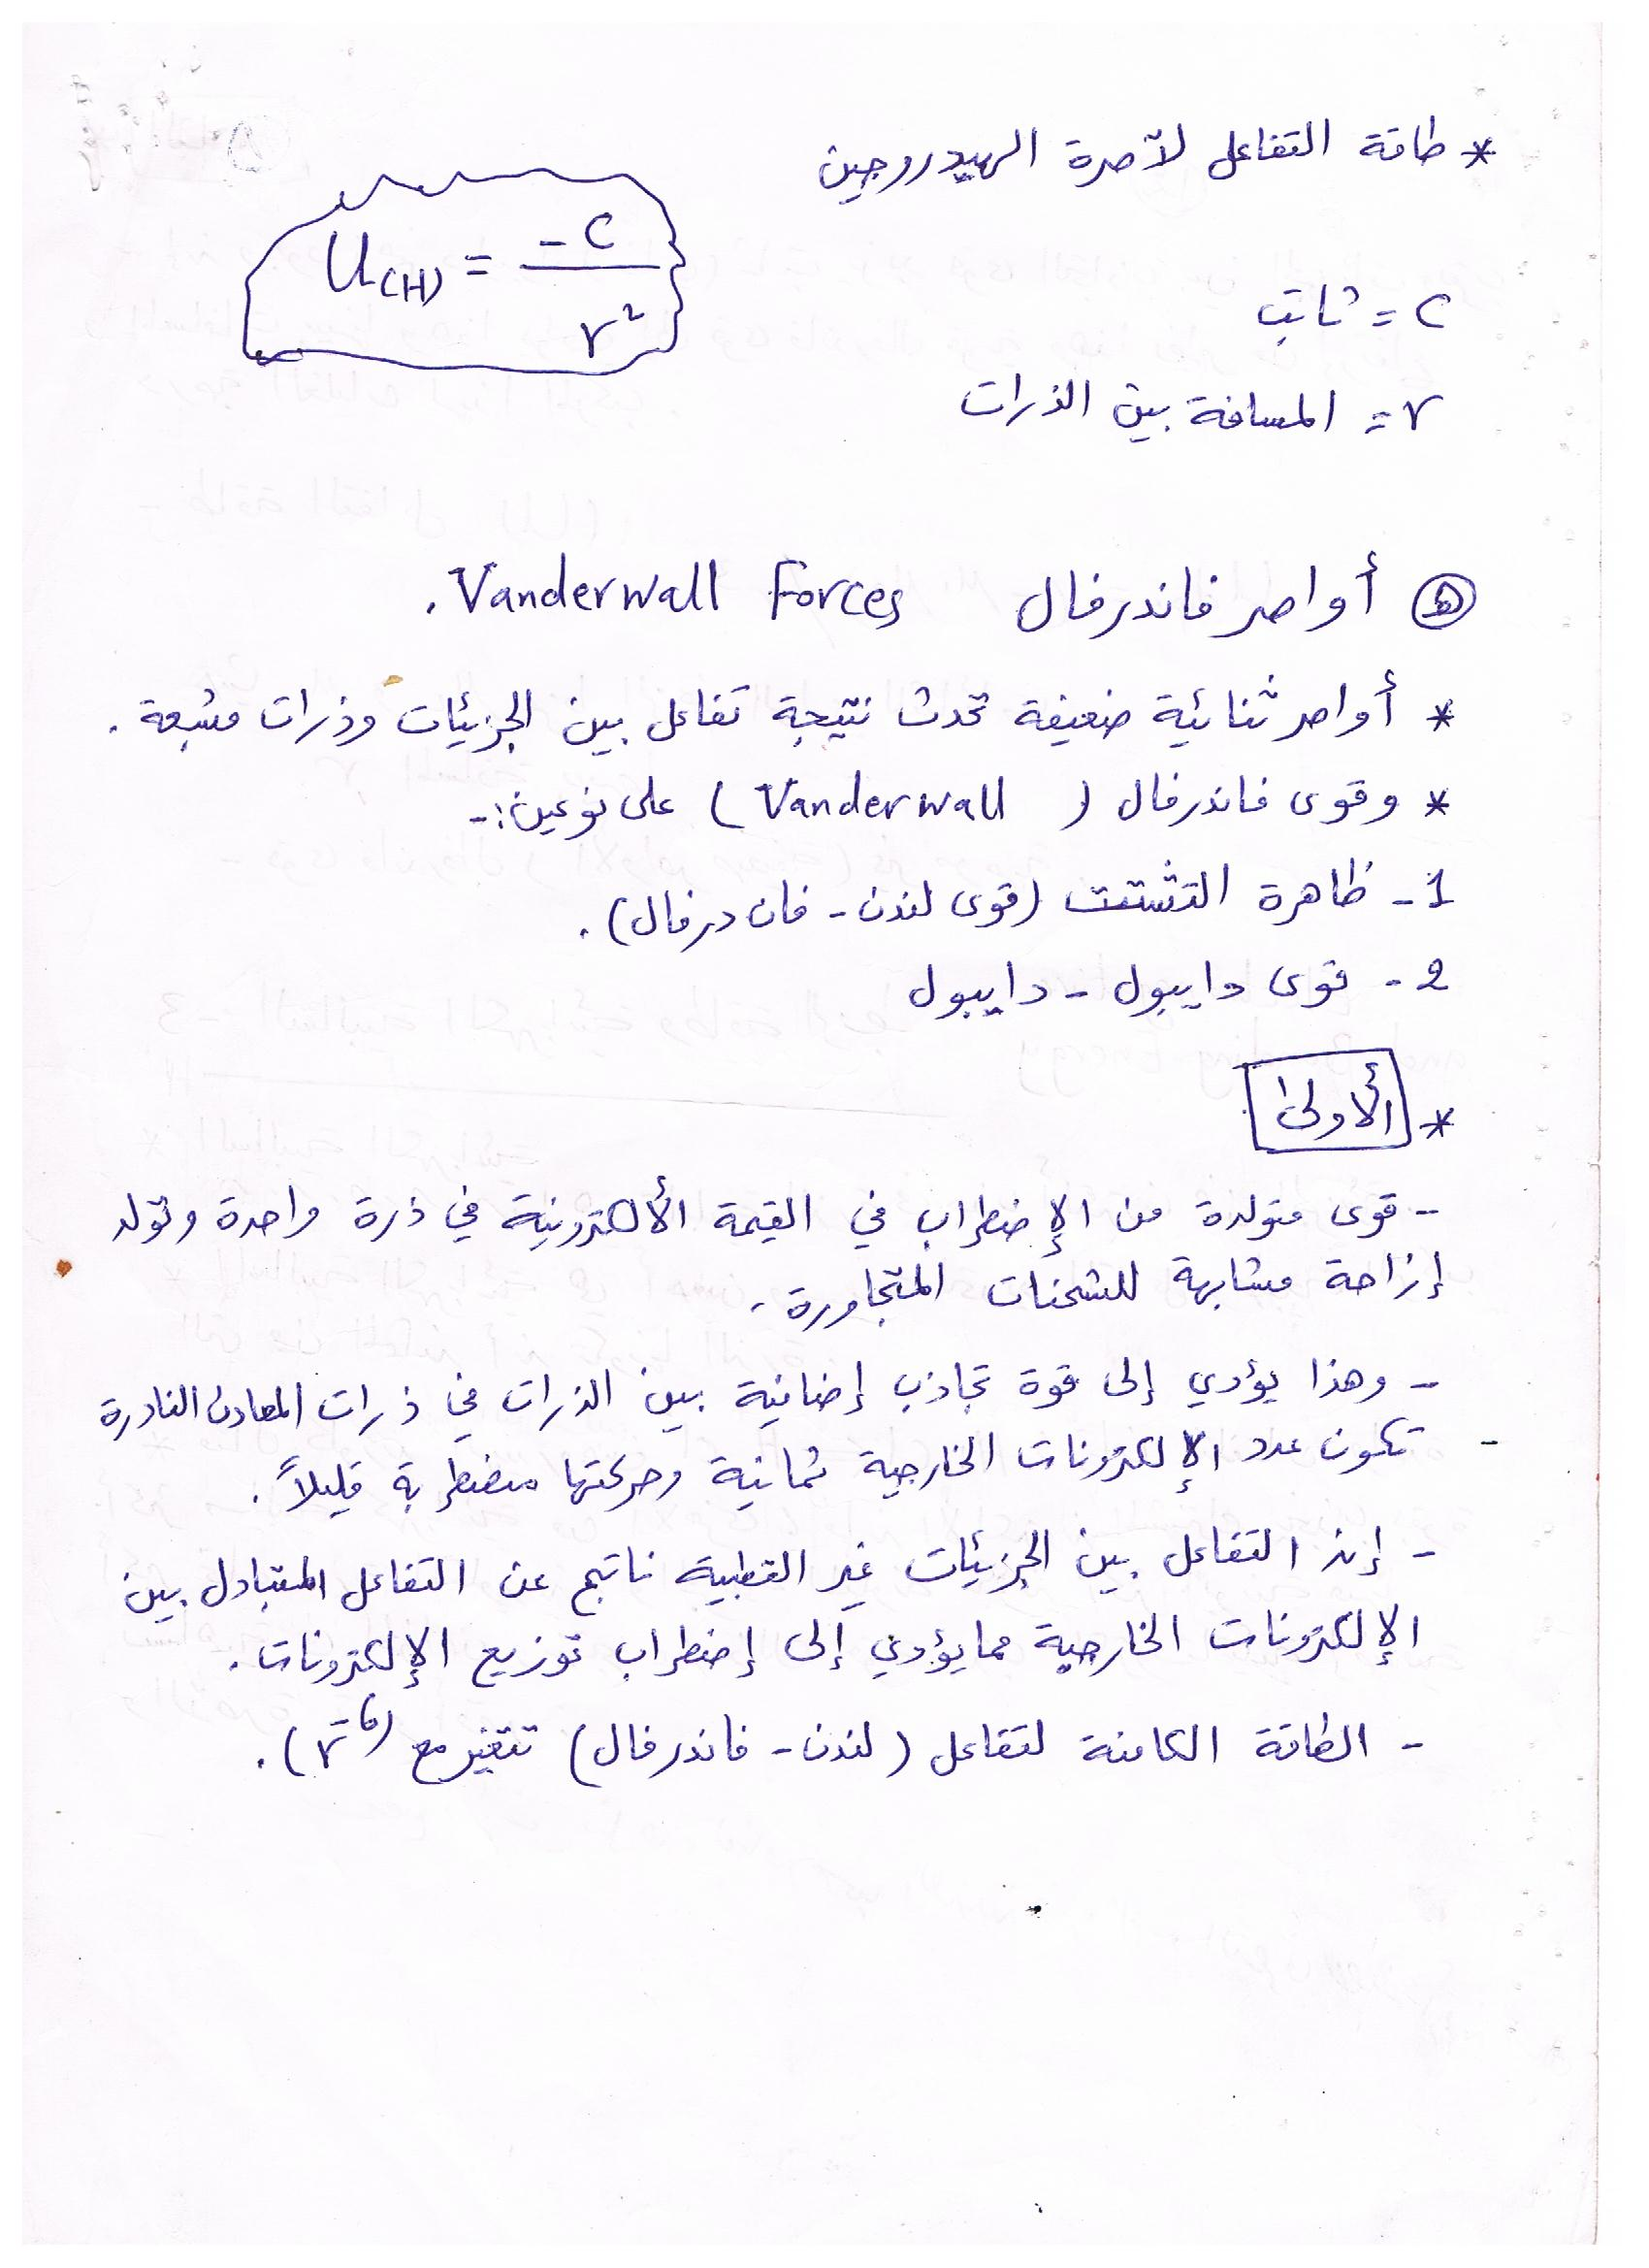 * طاقة التفاعل لآصرة الهيدروجين
U(H) = -C / r²
C = ثابت
r = المسافة بين الذرات
ه أواصر فاندرفال Vanderwall Forces .
* أواصر ثنائية ضعيفة تحدث نتيجة تفاعل بين الجزيئات وذرات مشبعة .
* وقوى فاندرفال ( Vanderwall ) على نوعين :-
1- ظاهرة التشتت (قوى لندن - فان درفال) .
2- قوى دايبول - دايبول
* الأولى
- قوى متولدة من الإضطراب في القيمة الألكترونية في ذرة واحدة وتولد
إزاحة مشابهة للشحنات المتجاورة .
- وهذا يؤدي إلى قوة تجاذب إضافية بين الذرات في ذرات المعادن النادرة
- تكون عدد الإلكترونات الخارجية ثمانية وحركتها مضطربة قليلاً .
- إن التفاعل بين الجزيئات غير القطبية ناتج عن التفاعل المتبادل بين
الإلكترونات الخارجية مما يؤدي إلى إضطراب توزيع الإلكترونات .
- الطاقة الكامنة لتفاعل (لندن - فاندرفال) تتغير مع (r⁻⁶) .